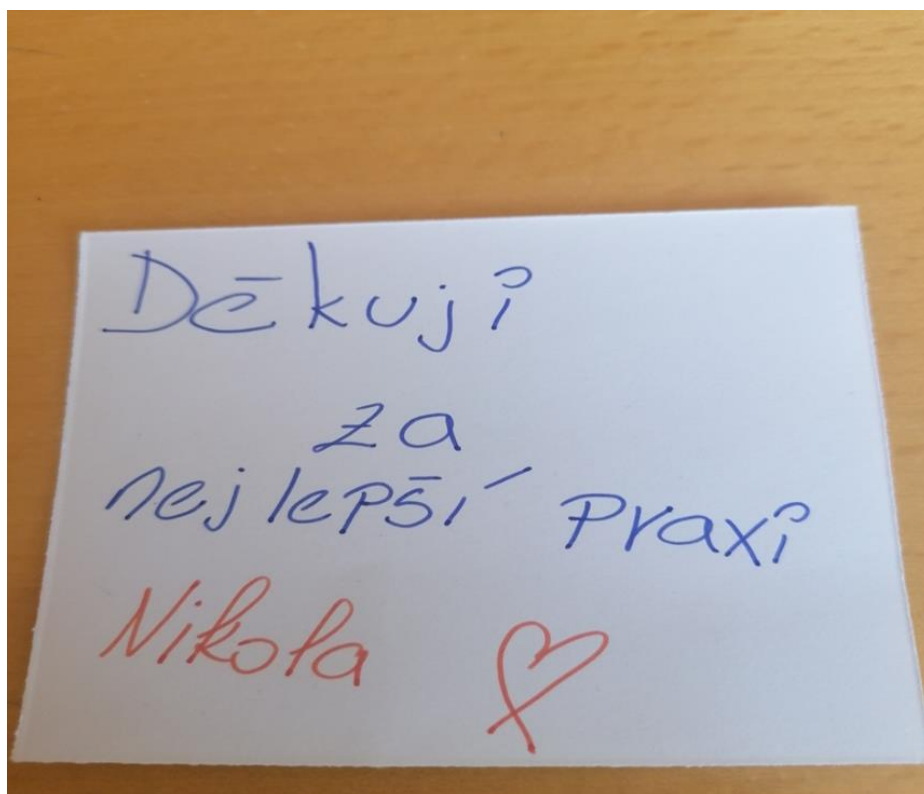 Děkuji
za
nejlepší praxi
Nikola